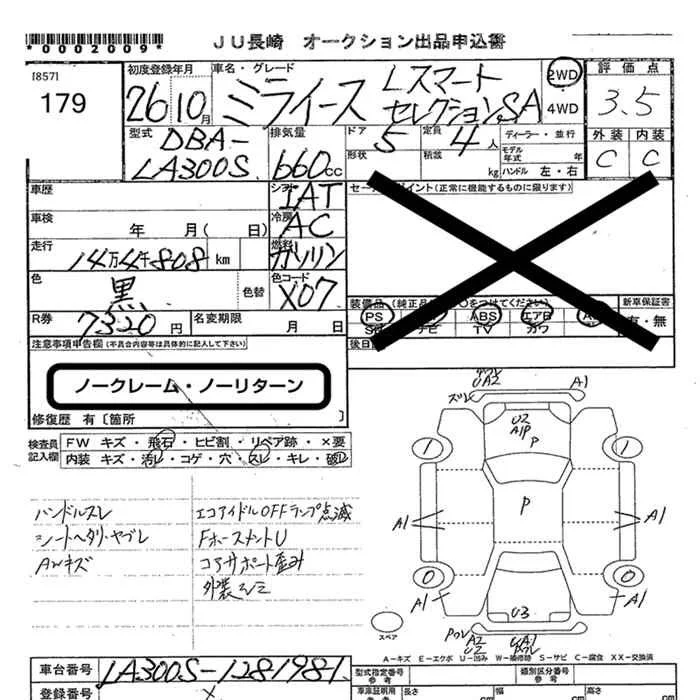 *0002009*
JU長崎 オークション出品申込書
[857]
179
初度登録年月
26年10月
車名・グレード
ミライース Lスマートセレクション,SA
2WD
4WD
評価点
3.5
外装 内装
C C
型式
DBA-LA300S
排気量
660cc
ドア
5
定員
4人
形状
積載
kg
ディーラー・並行
モデル年式 年
ハンドル 左・右
車歴
シフト
IAT
車検 年 月( 日)
冷房
AC
走行
14万4千808km
燃料
ガソリン
色
黒
色替
色コード
X07
R券
7320円
名変期限 月 日
セールスポイント(正常に機能するものに限ります)
新車保証書
有・無
PS
ABS
エアB
TV
後日
注意事項申告欄(不具合内容等は具体的に記入して下さい)
ノークレーム・ノーリターン
修復歴 有〔箇所 〕
検査員記入欄
FW キズ・飛石・ヒビ割・リペア跡・×要
内装 キズ・汚れ・コゲ・穴・スレ・キレ・破れ
ハンドルスレ
シートヘタリ・ヤブレ
AWキズ
エコアイドルOFFランプ点滅
FホースメントU
コアサポート歪み
U2
A1/P
P
P
U3
A1
A1
A1
A1
A1
1
1
0
0
スペア
A-キズ E-エクボ U-凹み W-補修跡 S-サビ C-腐食 XX-交換済
車台番号
LA300S-1281981
登録番号
型式指定番号
参考
類別区分番号
参考
車庫証明用
参考
長さ
cm
幅
cm
高さ
cm